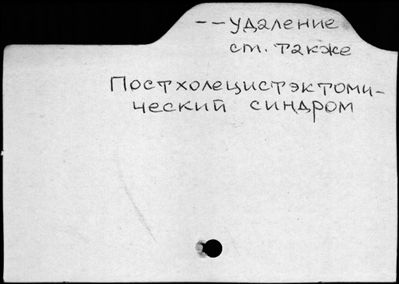 -- удаление
ст. также
Постхолецистэктоми-
ческий синдром